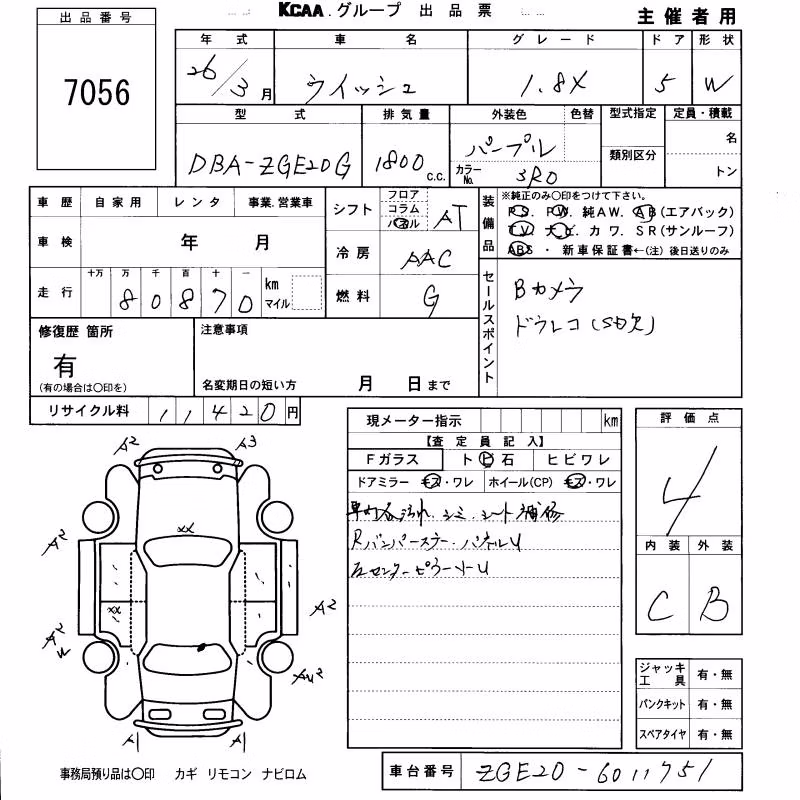 KCAA.グループ 出品票
主催者用
出品番号
7056
年式 車名 グレード ドア 形状
26/3月 ウイッシュ 1.8X 5 W
型式 排気量 外装色 色替 型式指定 定員・積載
DBA-ZGE20G 1800 c.c. パープル 名
カラーNo. 3R0 類別区分 トン
車歴 自家用 レンタ 事業.営業車
車検 年 月
走行 十万 万 千 百 十 一
80870 km マイル
シフト フロア コラム パネル AT
冷房 AAC
燃料 G
装備品 ※純正のみ〇印をつけて下さい。
PS. PW. 純AW. AB(エアバック)
TV. ナビ. カワ. SR(サンルーフ)
ABS・新車保証書←(注)後日送りのみ
セールスポイント
Bカメラ
ドラレコ(SD欠)
修復歴 箇所
有
(有の場合は〇印を)
注意事項
名変期日の短い方 月 日まで
リサイクル料 11420円
現メーター指示 km
【査定員記入】
Fガラス ト ビ 石 ヒビワレ
ドアミラー キズ・ワレ ホイール(CP) キズ・ワレ
車内 汚れ シミ シート 補修
Rバンパーステー・パネルU
センターピラー
評価点
4
内装 外装
C B
A2 A3
XX
A2
XX
A2
A2
W
AU2
A1 A1
ジャッキ 工具 有・無
パンクキット 有・無
スペアタイヤ 有・無
事務局預り品は〇印 カギ リモコン ナビロム
車台番号 ZGE20-6011751